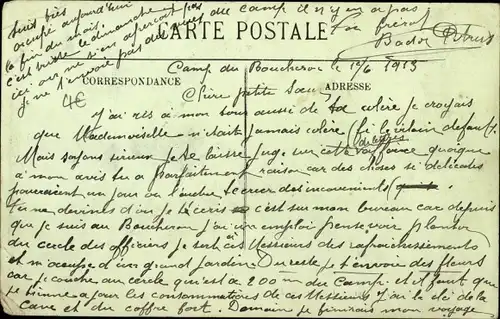 suis très
occupé aujourd'hui
la fin du mois
c'est triste le dimanche
ici on ne s'en aperçoit pas
je ne t'envoie pas de
du camp il n'y en a pas
Ton frère
Bador
CARTE POSTALE
CORRESPONDANCE
ADRESSE
4€
Camp du Boucheron le 12/6 1913
Chère petite Soeur
J'ai ris à mon saus aussi de ta colère je croyais
que Mademoiselle n'était jamais colère
Mais soyons sérieux je te laisse juge sur cette quoique
à mon avis tu a parfaitement raison car des choses si délicates
pouvaient un jour ou l'autre causer des inconvénients
tu ne devines d'où je t'écris c'est sur mon bureau car depuis
que je suis au Boucheron j'ai un emploi pense voir planton
du cercle des officiers je sert à ces Messieurs des rafraichissements
et m'occupe d'un grand jardin. Du reste je t'envoie des fleurs
car je couche au cercle qu'est à 200 m du Camp. et il faut que
je tienne à jour les consommations de ces Messieurs j'ai la clé de la
cave et du coffre fort. Demain je finirais mon voyage